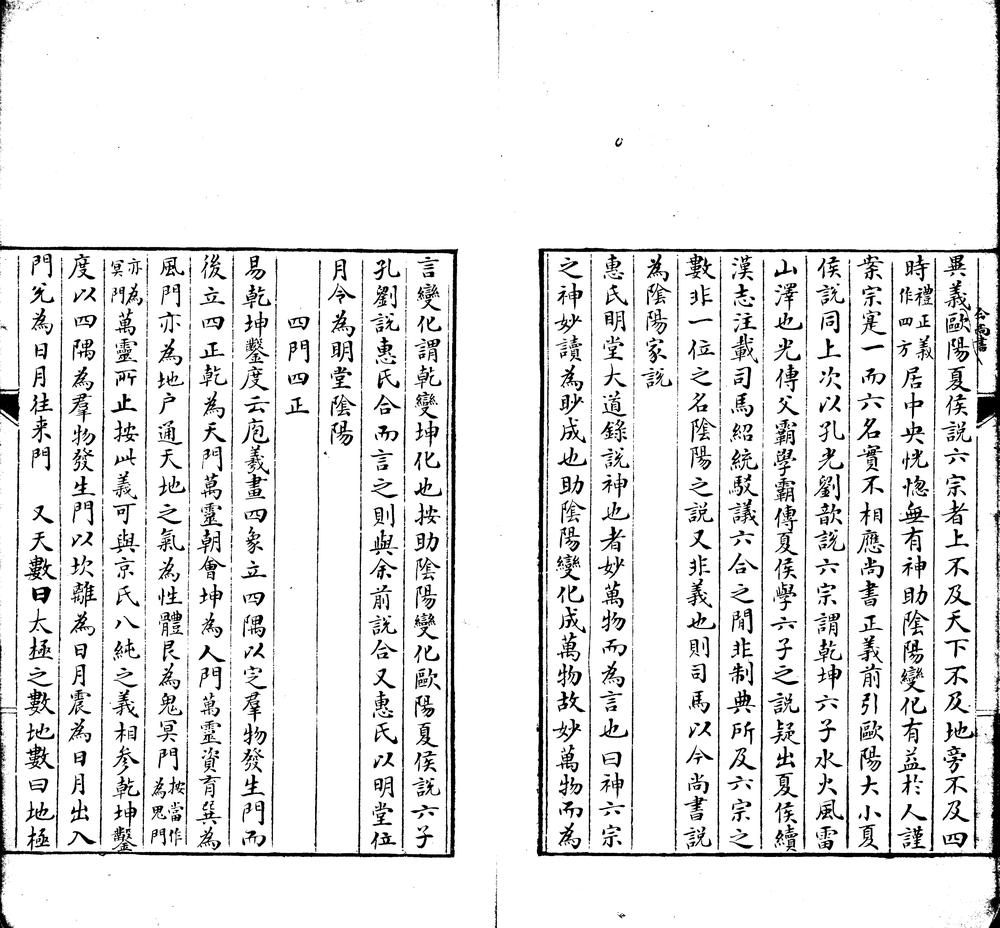 異義歐陽夏侯說六宗者上不及天下不及地旁不及四
今尚書
時禮正義作四方居中央恍惚無有神助陰陽變化有益於人謹
案宗寔一而六名實不相應尚書正義前引歐陽大小夏
侯說同上次以孔光劉歆說六宗謂乾坤六子水火風雷
山澤也光傳父霸學霸傳夏侯學六子之說疑出夏侯續
漢志注載司馬紹統駮議六合之閒非制典所及六宗之
數非一位之名陰陽之說又非義也則司馬以今尚書說
為陰陽家說
惠氏明堂大道錄說神也者妙萬物而為言也曰神六宗
之神妙讀為眇成也助陰陽變化成萬物故妙萬物而為
言變化謂乾變坤化也按助陰陽變化歐陽夏侯說六子
孔劉說惠氏合而言之則與余前說合又惠氏以明堂位
月令為明堂陰陽
四門四正
易乾坤鑿度云庖羲畫四象立四隅以定羣物發生門而
後立四正乾為天門萬靈朝會坤為人門萬靈資育巽為
風門亦為地户通天地之氣為性體艮為鬼冥門按當作為鬼門
亦為冥門萬靈所止按此義可與京氏八純之義相參乾坤鑿
度以四隅為羣物發生門以坎離為日月震為日月出入
門兌為日月往来門 又天數曰太極之數地數曰地極